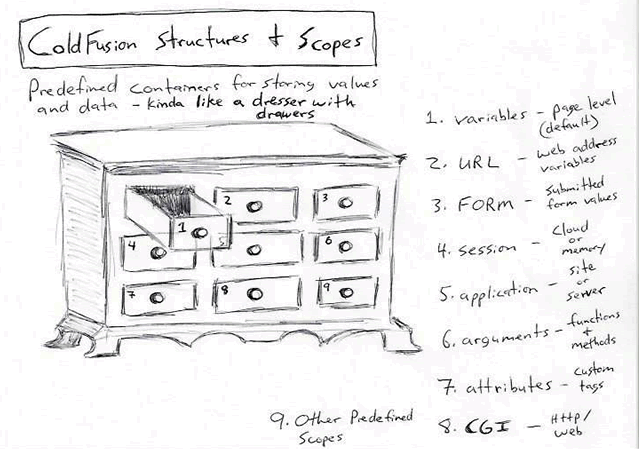 ColdFusion Structures + Scopes
Predefined containers for storing values
and data - kinda like a dresser with
drawers
1
2
3
4
5
6
7
8
9
1. variables - page level
(default)
2. URL - web address
variables
3. FORM - submitted
form values
4. session - cloud
or
memory
5. application - site
or
server
6. arguments - functions
+
methods
7. attributes - custom
tags
8. CGI - Http/
web
9. Other Predefined
Scopes